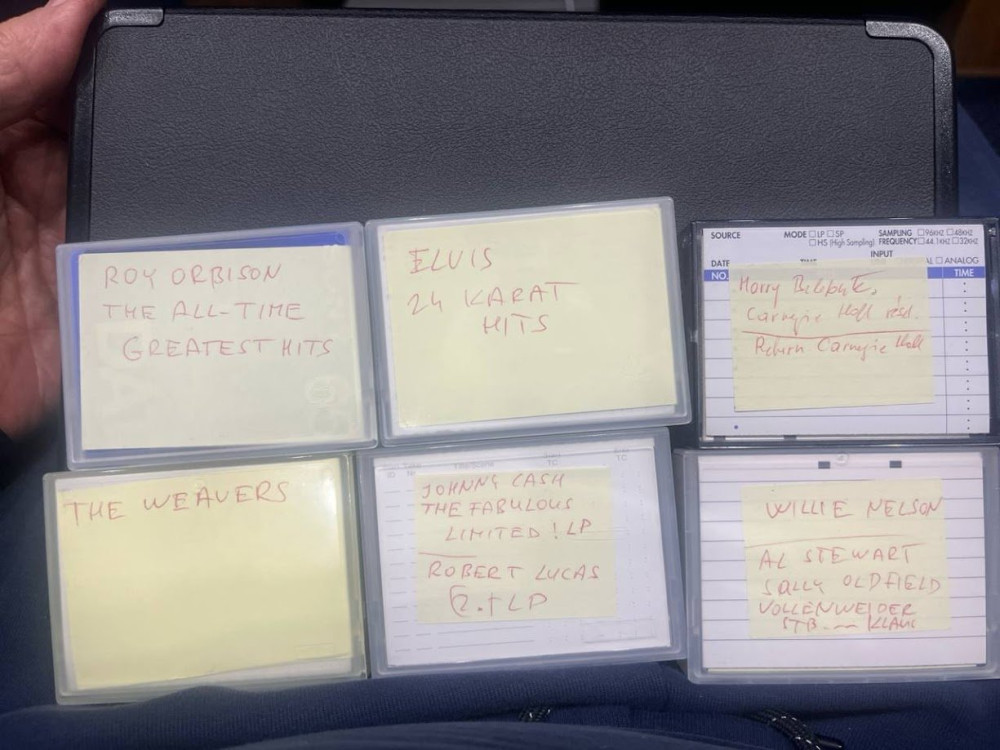 ROY ORBISON
THE ALL-TIME
GREATEST HITS
ELVIS
24 KARAT
HITS
SOURCE MODE □ LP □ SP SAMPLING □ 96KHZ □ 48KHZ
□ HS (High Sampling) FREQUENCY □ 44.1KHZ □ 32KHZ
INPUT
DATE AL □ ANALOG
NO. TIME
Harry
Carnegie Hall
Return Carnegie Hall
THE WEAVERS
JOHNNY CASH
THE FABULOUS
LIMITED! LP
ROBERT LUCAS
LP
WILLIE NELSON
AL STEWART
SALLY OLDFIELD
VOLLENWEIDER